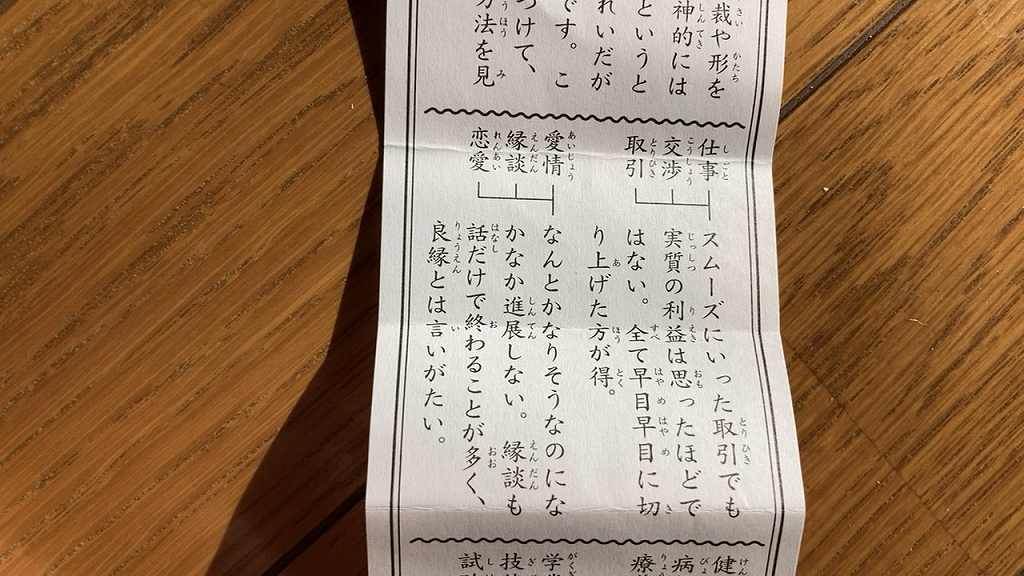 裁や形を
神的には
というと
れいだが
です。こ
つけて、
方法を見
仕事
交渉
取引
スムーズにいった取引でも
実質の利益は思ったほどで
はない。全て早目早目に切
り上げた方が得。
愛情
縁談
恋愛
なんとかなりそうなのにな
かなか進展しない。縁談も
話だけで終わることが多く、
良縁とは言いがたい。
健
病
療
学業
技
試